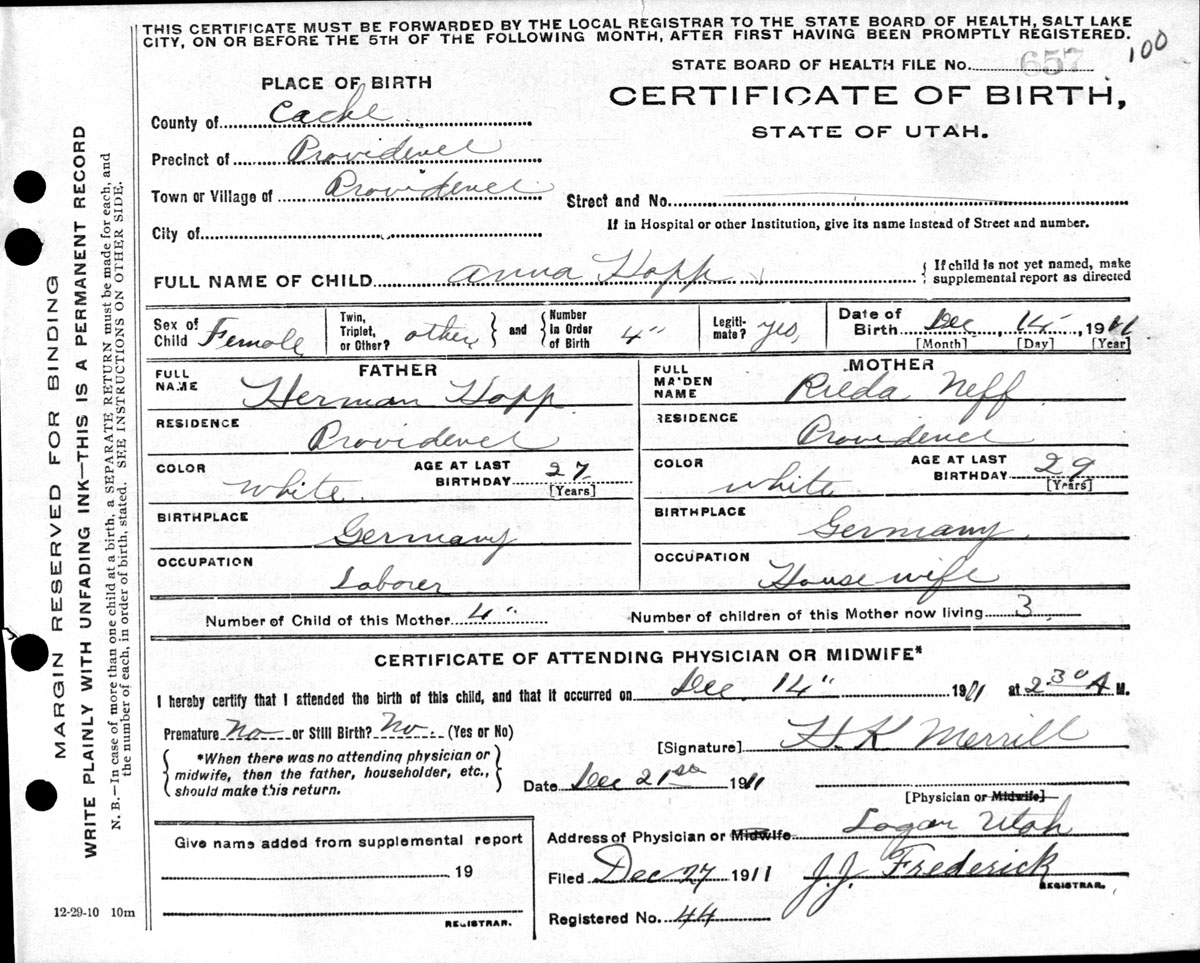 THIS CERTIFICATE MUST BE FORWARDED BY THE LOCAL REGISTRAR TO THE STATE BOARD OF HEALTH, SALT LAKE
CITY, ON OR BEFORE THE 5TH OF THE FOLLOWING MONTH, AFTER FIRST HAVING BEEN PROMPTLY REGISTERED.
100
STATE BOARD OF HEALTH FILE No. 657
PLACE OF BIRTH
CERTIFICATE OF BIRTH,
STATE OF UTAH.
County of Cache
Precinct of Providence
Town or Village of Providence
Street and No.
City of
If in Hospital or other Institution, give its name instead of Street and number.
FULL NAME OF CHILD Anna Hopp
{ If child is not yet named, make
supplemental report as directed
Sex of Child Female
Twin, Triplet, or Other? other } and { Number in Order of Birth 4"
Legitimate? yes,
Date of Birth Dec, 14, 1911
[Month] [Day] [Year]
FATHER
FULL NAME Herman Hopp
RESIDENCE Providence
COLOR White
AGE AT LAST BIRTHDAY 27 [Years]
BIRTHPLACE Germany
OCCUPATION Laborer
MOTHER
FULL MAIDEN NAME Rieda Neff
RESIDENCE Providence
COLOR White
AGE AT LAST BIRTHDAY 29 [Years]
BIRTHPLACE Germany
OCCUPATION House wife
Number of Child of this Mother 4" Number of children of this Mother now living 3
CERTIFICATE OF ATTENDING PHYSICIAN OR MIDWIFE*
I hereby certify that I attended the birth of this child, and that it occurred on Dec 14" 1911 at 2.30 A M.
Premature No or Still Birth? No. (Yes or No)
[Signature] H K Merrill
{ *When there was no attending physician or
midwife, then the father, householder, etc.,
should make this return. }
Date Dec 21st 1911
[Physician or Midwife]
Address of Physician or Midwife Logan Utah
Give name added from supplemental report
19
REGISTRAR.
Filed Dec 27 1911 J.J. Frederick
REGISTRAR.
Registered No. 44
12-29-10 10m
MARGIN RESERVED FOR BINDING
WRITE PLAINLY WITH UNFADING INK—THIS IS A PERMANENT RECORD
N. B.—In case of more than one child at a birth, a SEPARATE RETURN must be made for each, and
the number of each, in order of birth, stated. SEE INSTRUCTIONS ON OTHER SIDE.